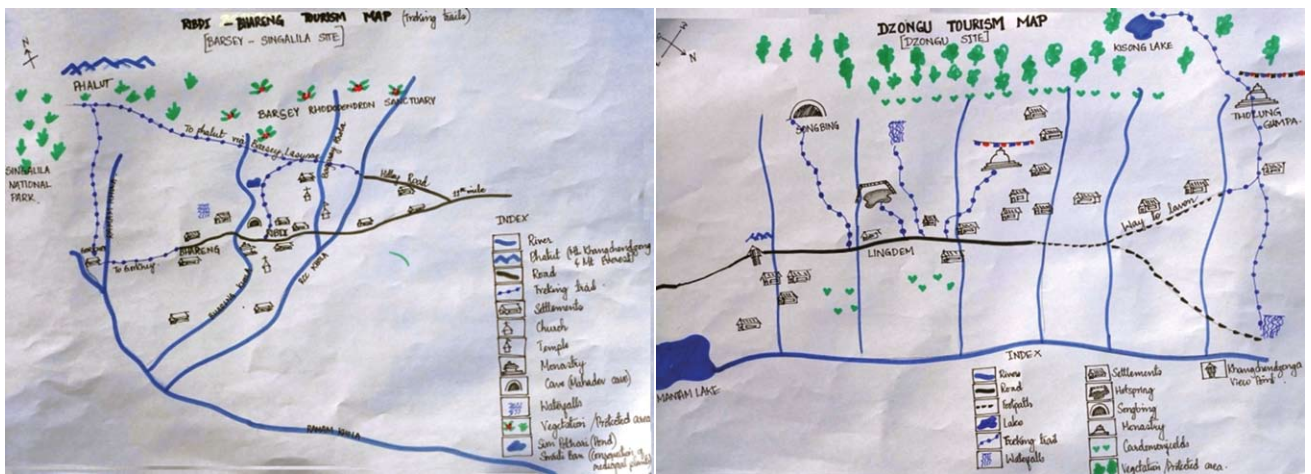 RIBDI - BHARENG TOURISM MAP (Treking trails)
[BARSEY - SINGALILA SITE]
N
PHALUT
BARSEY RHODODENDRON SANCTUARY
To phalut via Barsey
SINGALILA
NATIONAL
PARK.
Hilley Road
RIBDI
BHARENG
To Gorkhey
BHARENG KHOLA
KHOLA
INDEX
River
Phalut (Mt. Khangchendzonga
& Mt. Everest)
Road
Treking trail
Settlements
Church
Temple
Monastry
Cave (Mahadev cave)
Waterfalls
Vegetation / Protected area
(Pond)
RAMAM KHOLA
DZONGU TOURISM MAP
[DZONGU SITE]
N
KISONG LAKE
THOLUNG
GUMPA.
SONGBING
Way to lavon
LINGDEM
MANTAM LAKE
INDEX
River
Road
footpaths
Lake
Treking trail
Waterfalls
Settlements
Hotspring
Songbing
Monastry
Cardamom fields
Vegetation / Protected area.
Khangchendzonga
View Point.